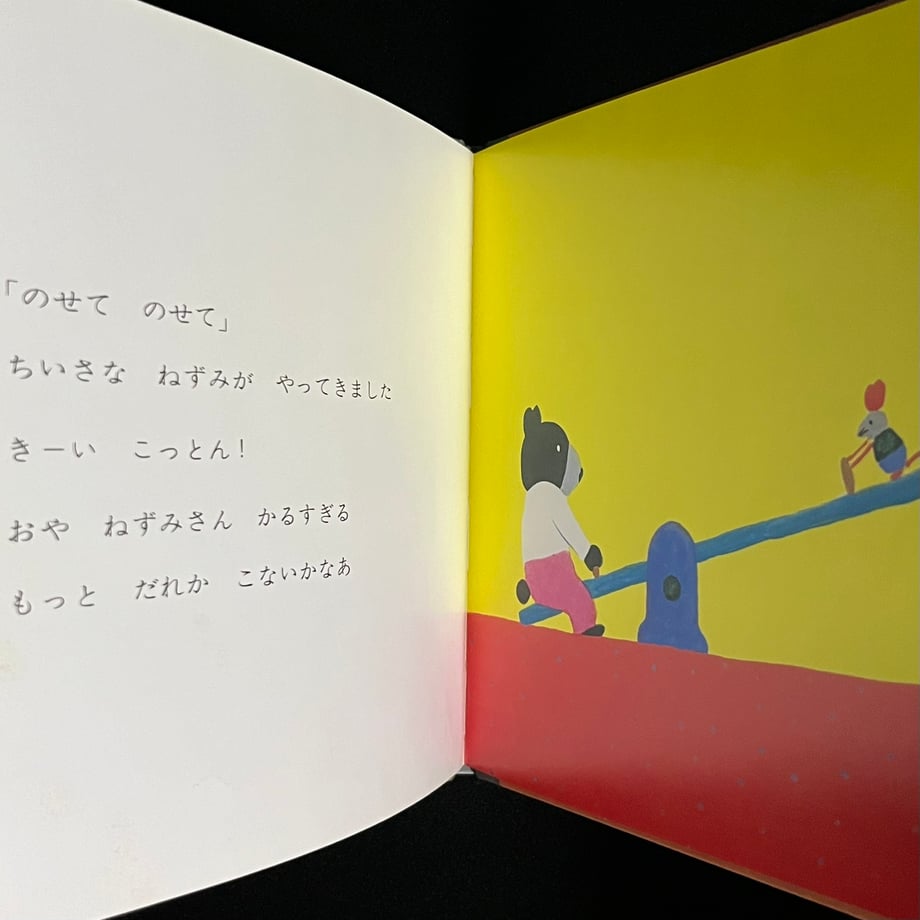 「のせて　のせて」
ちいさな　ねずみが　やってきました
きーい　こっとん！
おや　ねずみさん　かるすぎる
もっと　だれか　こないかなあ